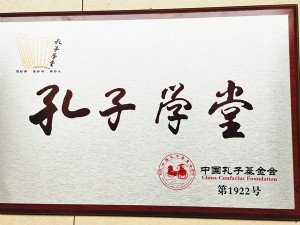 孔子学堂
孔子学堂
中国孔子基金会
China Confucius Foundation
第1922号